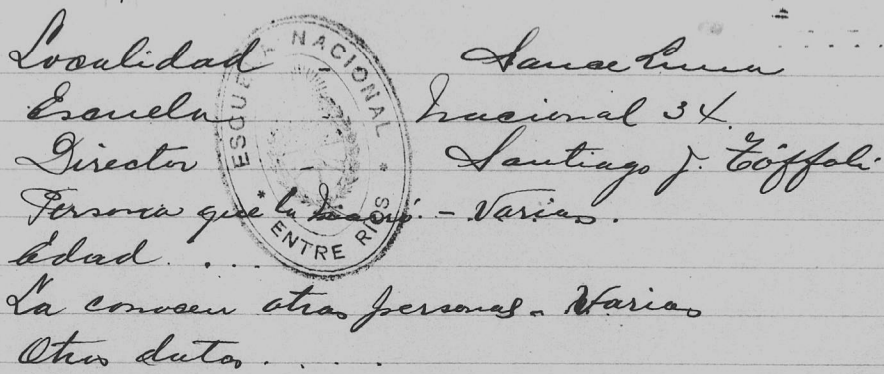 Localidad Sauce Luna
Escuela Nacional 34.
Director Santiago J. Tóffoli
Persona que la narró. - Varias.
Edad . . . .
La conocen otras personas - Varias
Otros datos . . . .
ESCUELA NACIONAL
* ENTRE RIOS *